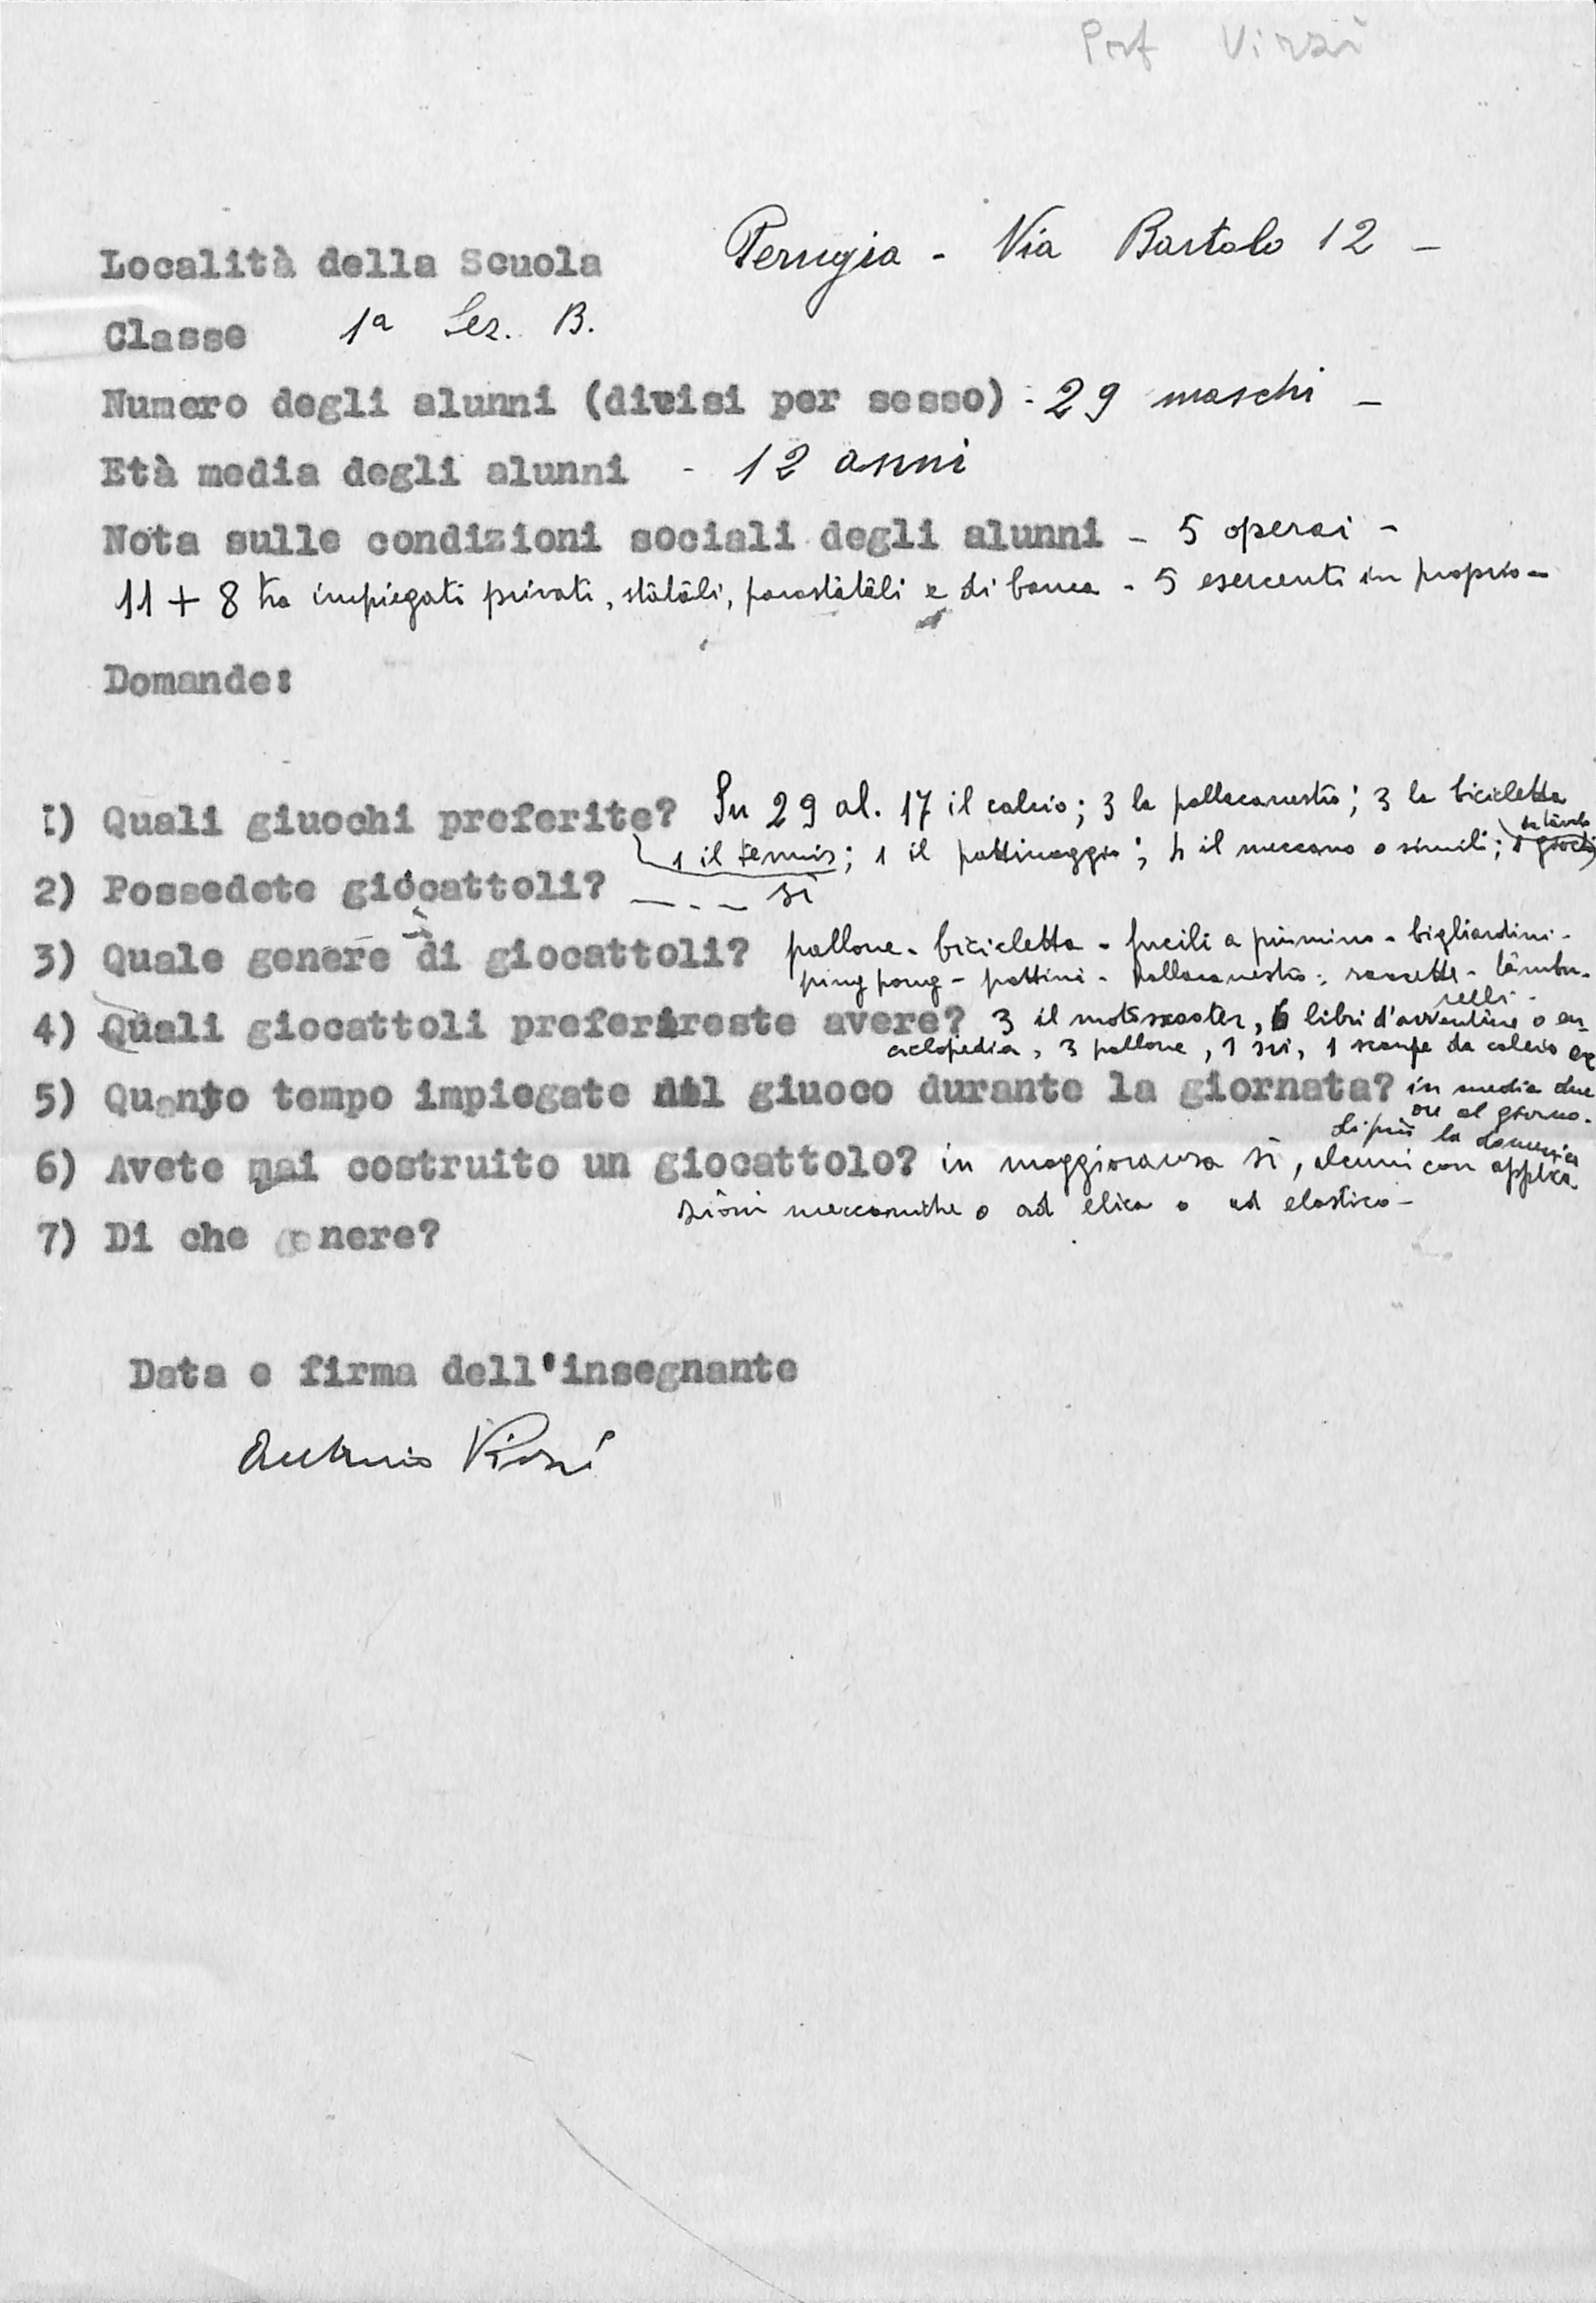 Prof Virzì
Località della Scuola Perugia - Via Bartolo 12 -
Classe 1ª Sez. B.
Numero degli alunni (divisi per sesso) : 29 maschi -
Età media degli alunni - 12 anni
Nota sulle condizioni sociali degli alunni - 5 operai -
11 + 8 tra impiegati privati, statali, parastatali e di banca - 5 esercenti in proprio -
Domande:
I) Quali giuochi preferite? Su 29 al. 17 il calcio; 3 la pallacanestro; 3 la bicicletta
1 il tennis; 1 il pattinaggio; 4 il meccano o simili; giochi
da tavolo
2) Possedete giocattoli? - - - - sì
3) Quale genere di giocattoli? pallone - bicicletta - fucili a piumino - bigliardini -
ping pong - pattini - pallacanestro - racchette - tambu-
relli -
4) Quali giocattoli preferireste avere? 3 il motoscooter, 6 libri d'avventure o en-
ciclopedia, 3 pallone, 1 sci, 1 scarpe da calcio
5) Quanto tempo impiegate nel giuoco durante la giornata? in media due
ore al giorno.
di più la domenica
6) Avete mai costruito un giocattolo? in maggioranza sì, alcuni con applica
zioni meccaniche o ad elica o ad elastico -
7) Di che genere?
Data e firma dell'insegnante
Antonio Virzì